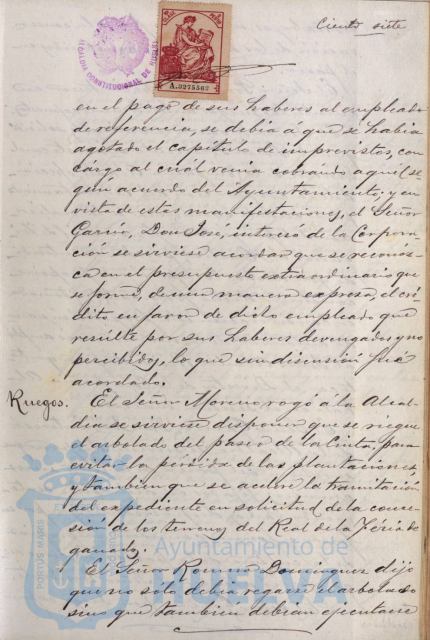 Ciento siete
ALCALDIA CONSTITUCIONAL DE HUELVA
A.0275562
en el pago de sus haberes al empleado
de referencia, se debia á que se habia
agotado el capítulo de imprevistos, con
cargo al cuál venia cobrando aquél se-
gún acuerdo del Ayuntamiento, y en
vista de estas manifestaciones, el Señor
García, Don José, interesó de la Corpora-
ción se sirviese acordar que se reconoz-
ca en el presupuesto extraordinario que
se forme, de una manera expresa, el cré-
dito en favor de dicho empleado que
resulte por sus haberes devengados y no
percibidos, lo que sin discusión fué
acordado.
Ruegos.
El Señor Moreno rogó á la Alcal-
dia se sirviese disponer que se riegue
el arbolado del paseo de la Cinta, para
evitar la pérdida de las plantaciones,
y tambien que se acelere la tramitación
del expediente en solicitud de la conce-
sión de los terrenos del Real de la Féria de
ganados.
El Señor Romero Dominguez dijo
que no solo debia regarse el arbolado
sino que tambien debian ejecutarse
PORTUS MARIS
Ayuntamiento de
HUELVA